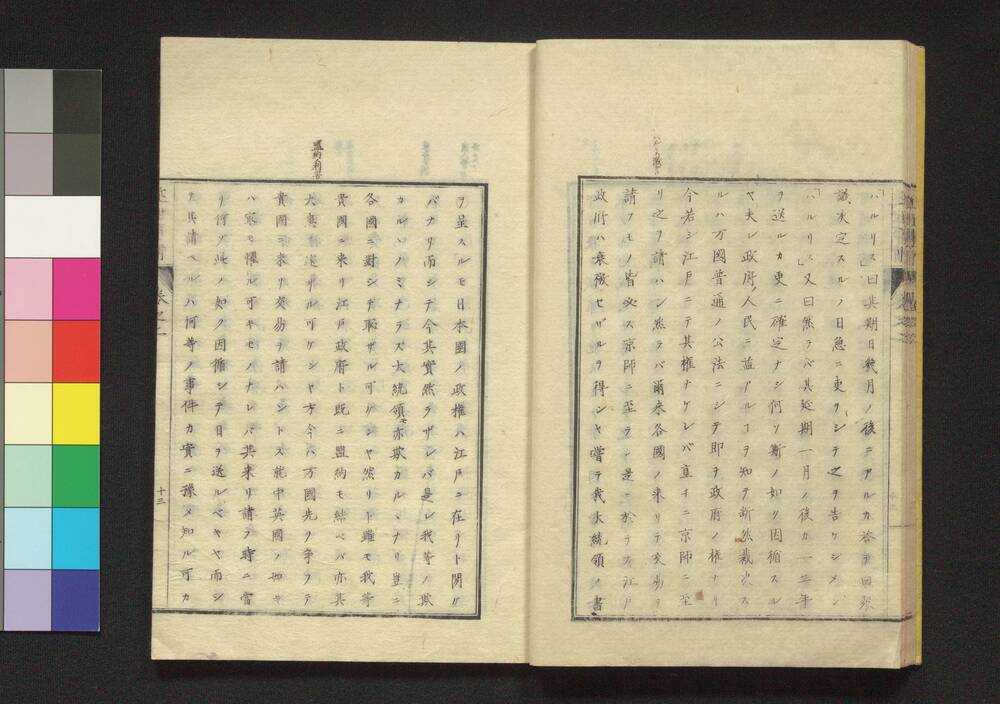 「ハルリス」曰其期日幾月ノ後ニアルカ
議決定スルノ日急ニ吏ヲシテ之ヲ告ケシメン
「ハルリス」又曰然ラバ其延期一月ノ後カ一二年
ヲ送ルカ更ニ確定ナシ何ソ斯ノ如ク因循スル
ヤ夫レ政府ノ人民ニ益アルヿヲ知ラ断然裁決ス
ルハ万国普通ノ公法ニシテ即ヲ政府ノ権ナリ
今若シ江戸ニテ其権ナケレバ直チニ京師ニ至
リ之ヲ請ハン然ラバ爾来各国ノ来リテ交易ヲ
請フモノ皆必ス京師ニ至ラン是ニ於テヲ江戸
政府ハ衰微セザルヲ得ンヤ嘗テ我大統領ノ書
ヲ呈スルモ日本国ノ政権ハ江戸ニ在リト聞ケ
バナリ而シテ今其実然ラザレバ是レ我等ノ欺
カルヽノミナラズ大統領モ亦欺カルヽナリ豈ニ
各国ニ対シテ恥ザル可ケンヤ然リト雖モ我等
貴国ニ来リ江戸政府ト既ニ盟約モ結ベバ亦其
大事ヲ遂ザル可ケンヤ方今ハ万國先ヲ争ヲテ
貴国ニ来リ交易ヲ請ハントス就中英國ノ如キ
ハ寔モ懼ル可キモノナレバ其来リ請フ時ニ當
リ何ソ此ノ如ク因循シテ日ヲ送ルベキヤ而シ
テ其請ヘルハ何等ノ事件カ實ニ豫メ知ル可カ
十三